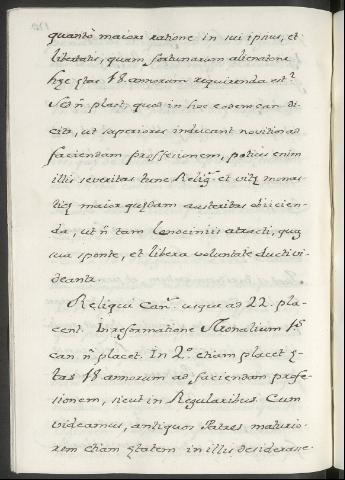 quanto maiori ratione in sui ipsius, et
libertatis, quam fortunarum alienatone
hęc ętas 18. annorum requirenda est?
Sed ñ placet, quod in hoc eodem can di
citr, ut superiores inducant novitios ad
faciendam professionem, potius enim
illis severitas tunc Relig. et vitę monas
ticę maior quędam austeritas obiicien
da, ut ñ tam lenociniis attracti, quam
sua sponte, et libera voluntate ducti vi
deantr.
Reliqui Can. usque ad 22. pla
cent. In reformatione Monialium 1.s
can. ñ placet. In 2.o etiam placet ę
tas 18 annorum ad faciendam profe
sionem, sicut in Regularibus. Cum
videamus, antiquos Patres maturio
rem etiam ętatem in illis desiderasse.